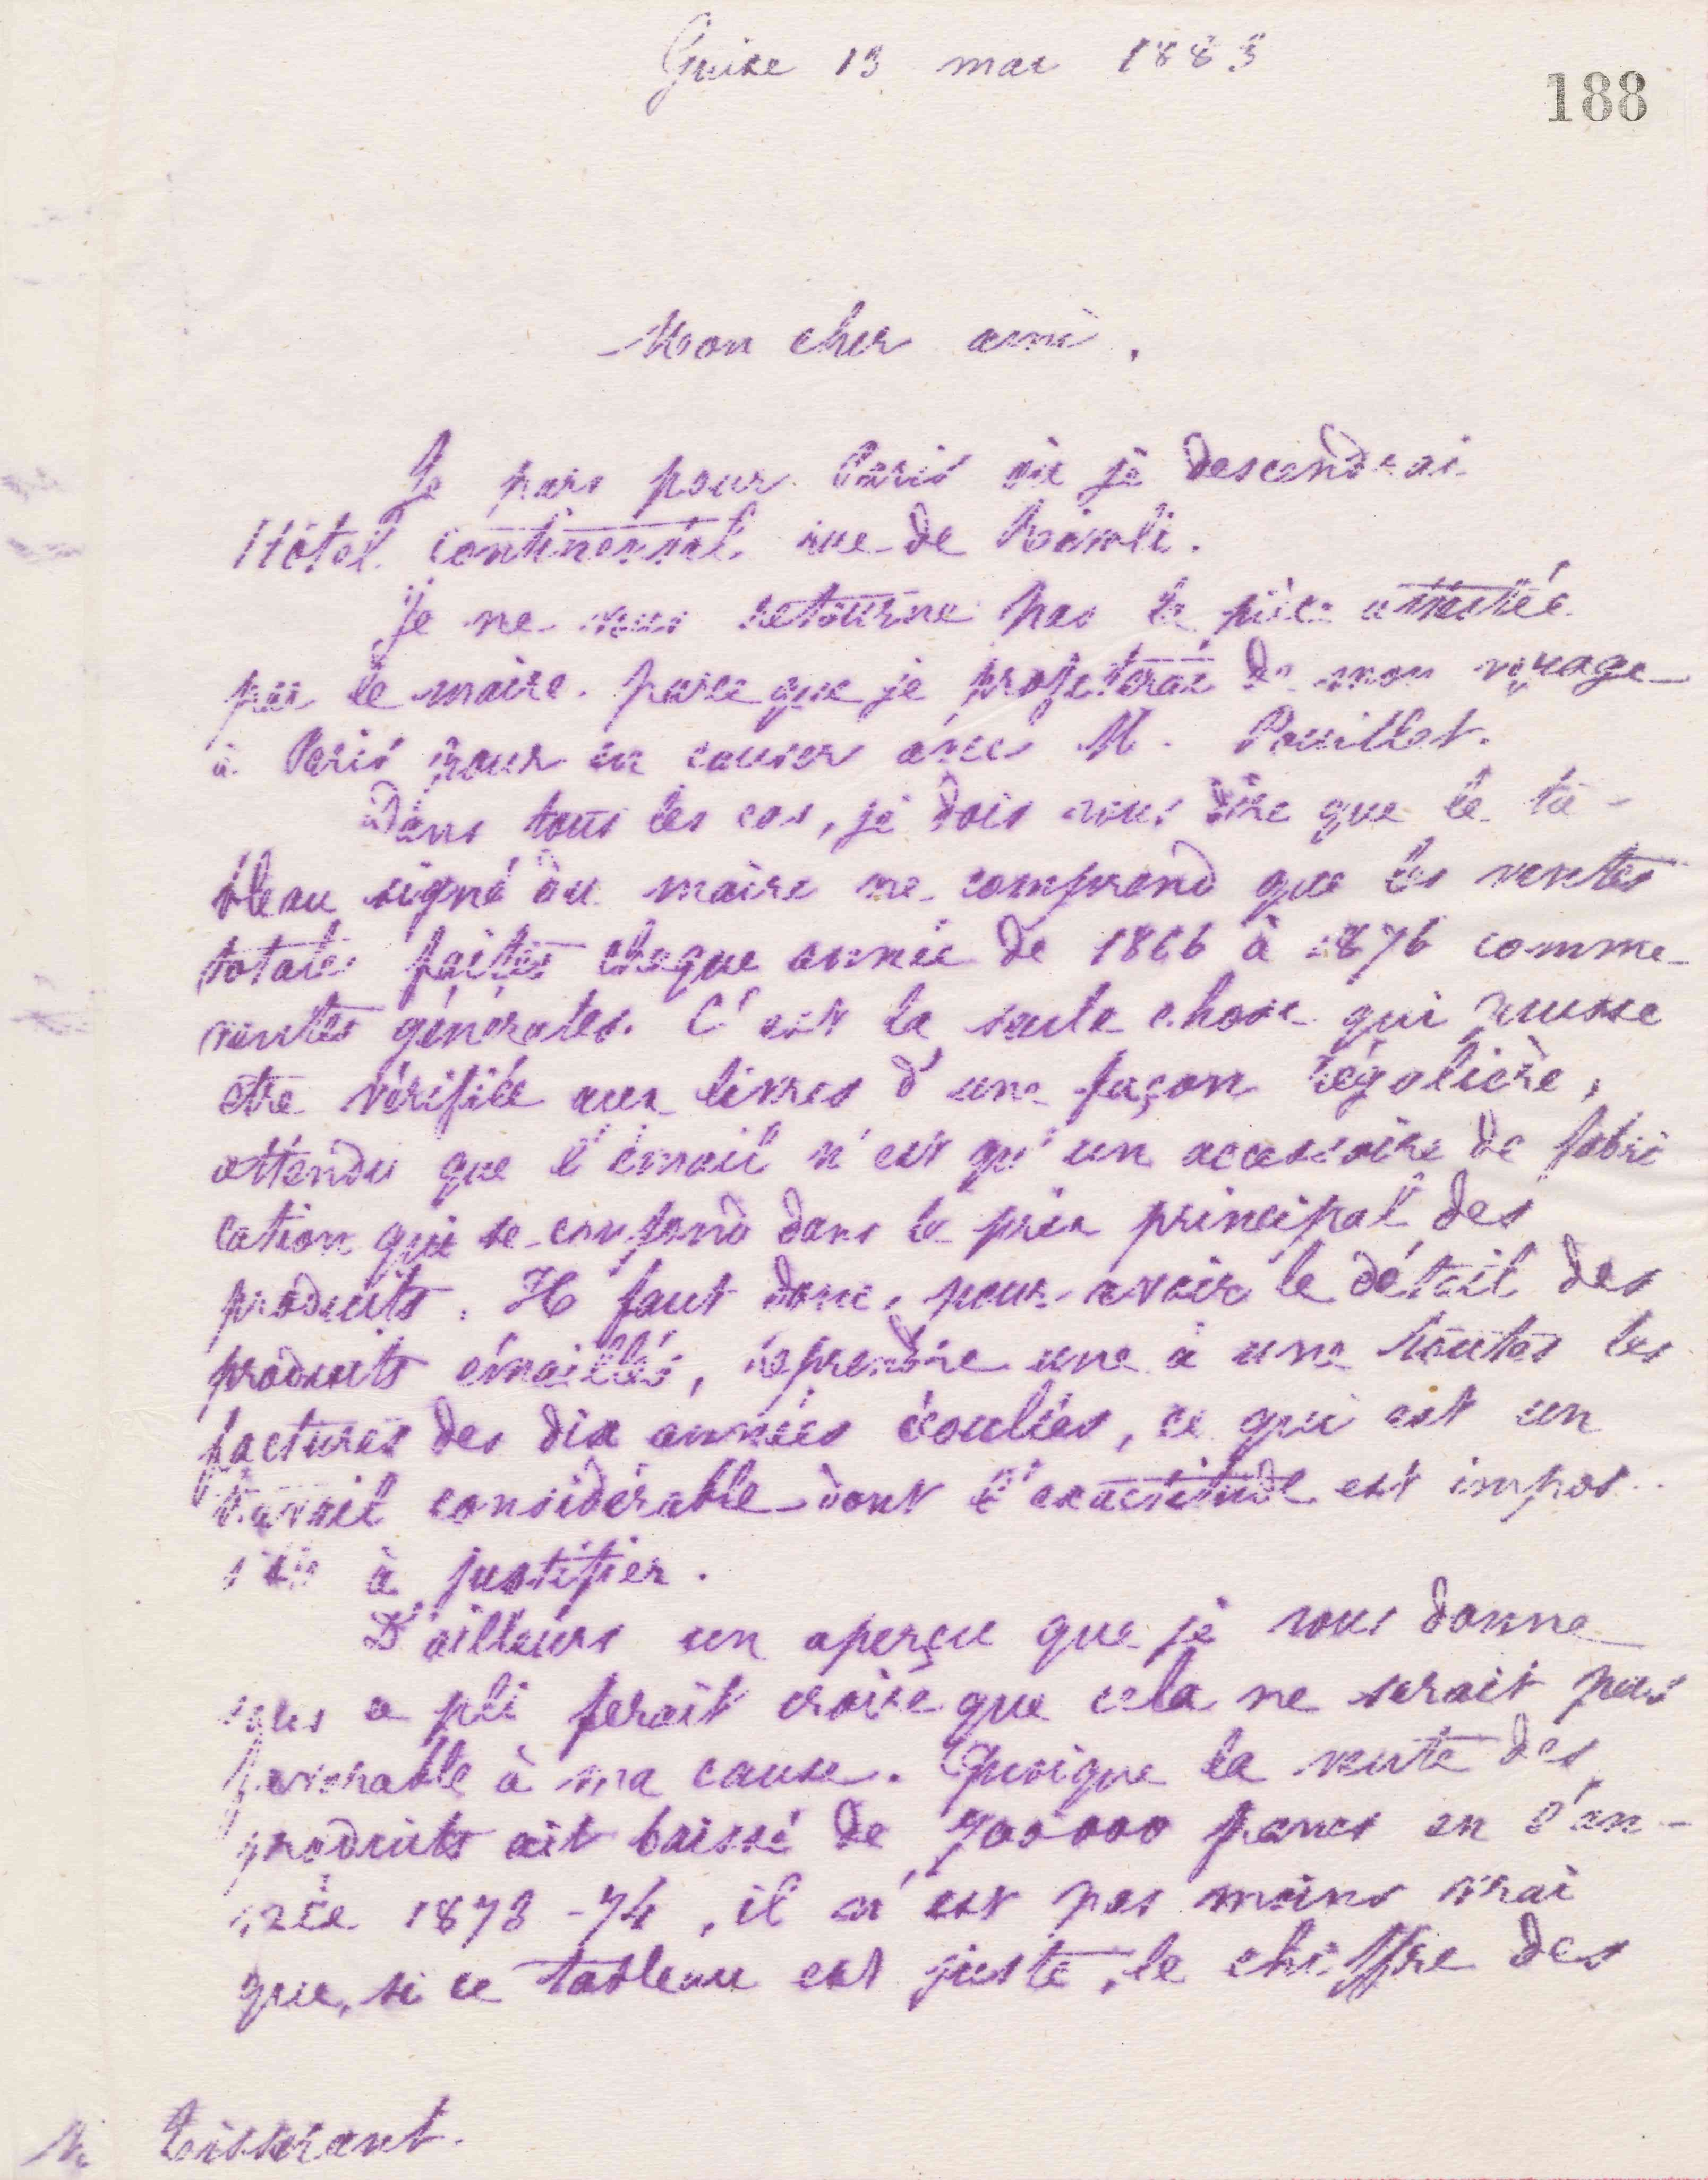 Guise 13 mai 1883
188
Mon cher ami,
Je pars pour Paris où je descendrai
Hôtel continental rue de Rivoli.
Je ne vous retourne pas la pièce attestée
par le maire. parce que je profiterai de mon voyage
à Paris pour en causer avec M. Pouillet.
Dans tous les cas, je dois vous dire que le ta-
bleau signé du maire ne comprend que les ventes
totales faites chaque année de 1866 à 1876 comme
ventes générales. C'est la seule chose qui puisse
être vérifiée aux livres d'une façon régulière,
attendu que l'émail n'est qu'un accessoire de fabri
cation qui se confond dans le prix principal des
produits. Il faut donc, pour avoir le détail des
produits émaillés, reprendre une à une toutes les
factures des dix années écoulées, ce qui est un
travail considérable dont l'exactitude est impos-
sible à justifier.
D'ailleurs un aperçu que je vous donne
sous ce pli ferait croire que cela ne serait pas
favorable à ma cause. Quoique la vente des
produits ait baissé de 700000 francs en l'an-
née 1873-74, il n'est pas moins vrai
que, si ce tableau est juste, le chiffre des
M. Tisserant.